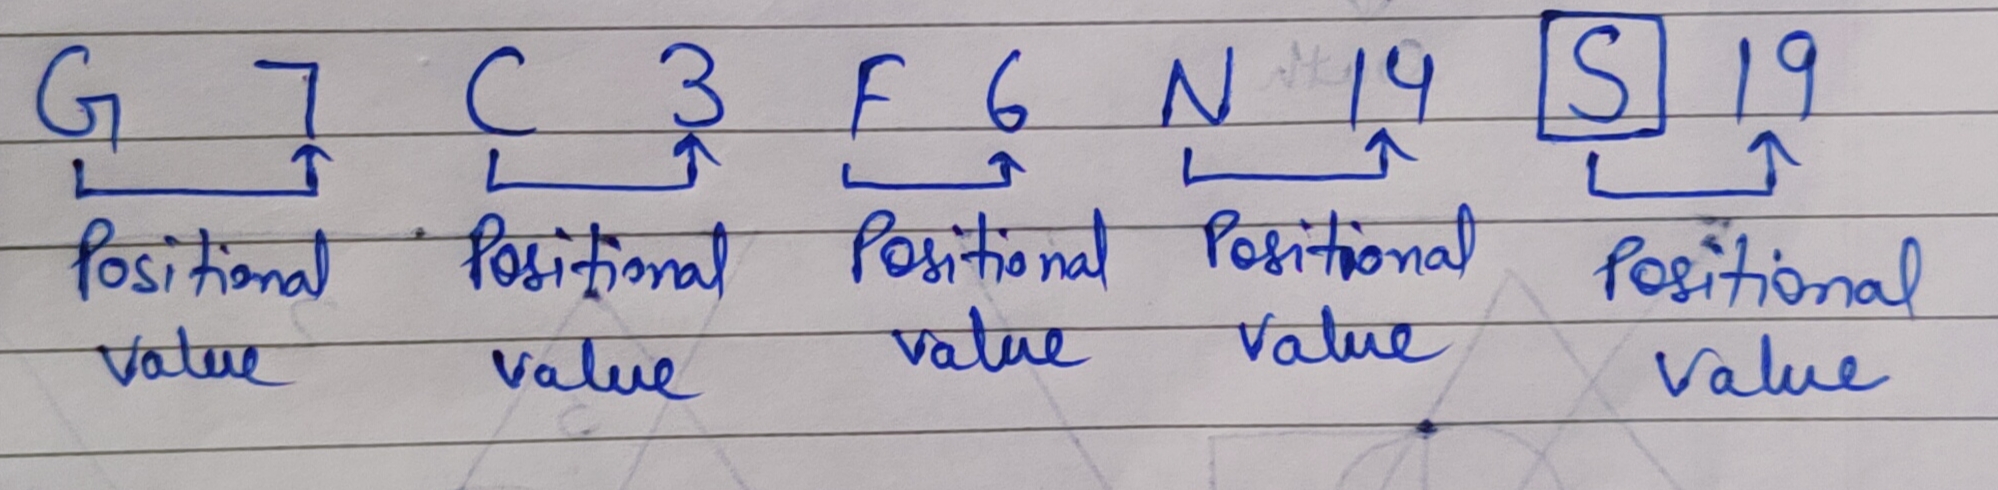 G 7 C 3 F 6 N 14 S 19
Positional Positional Positional Positional Positional
value value value value value